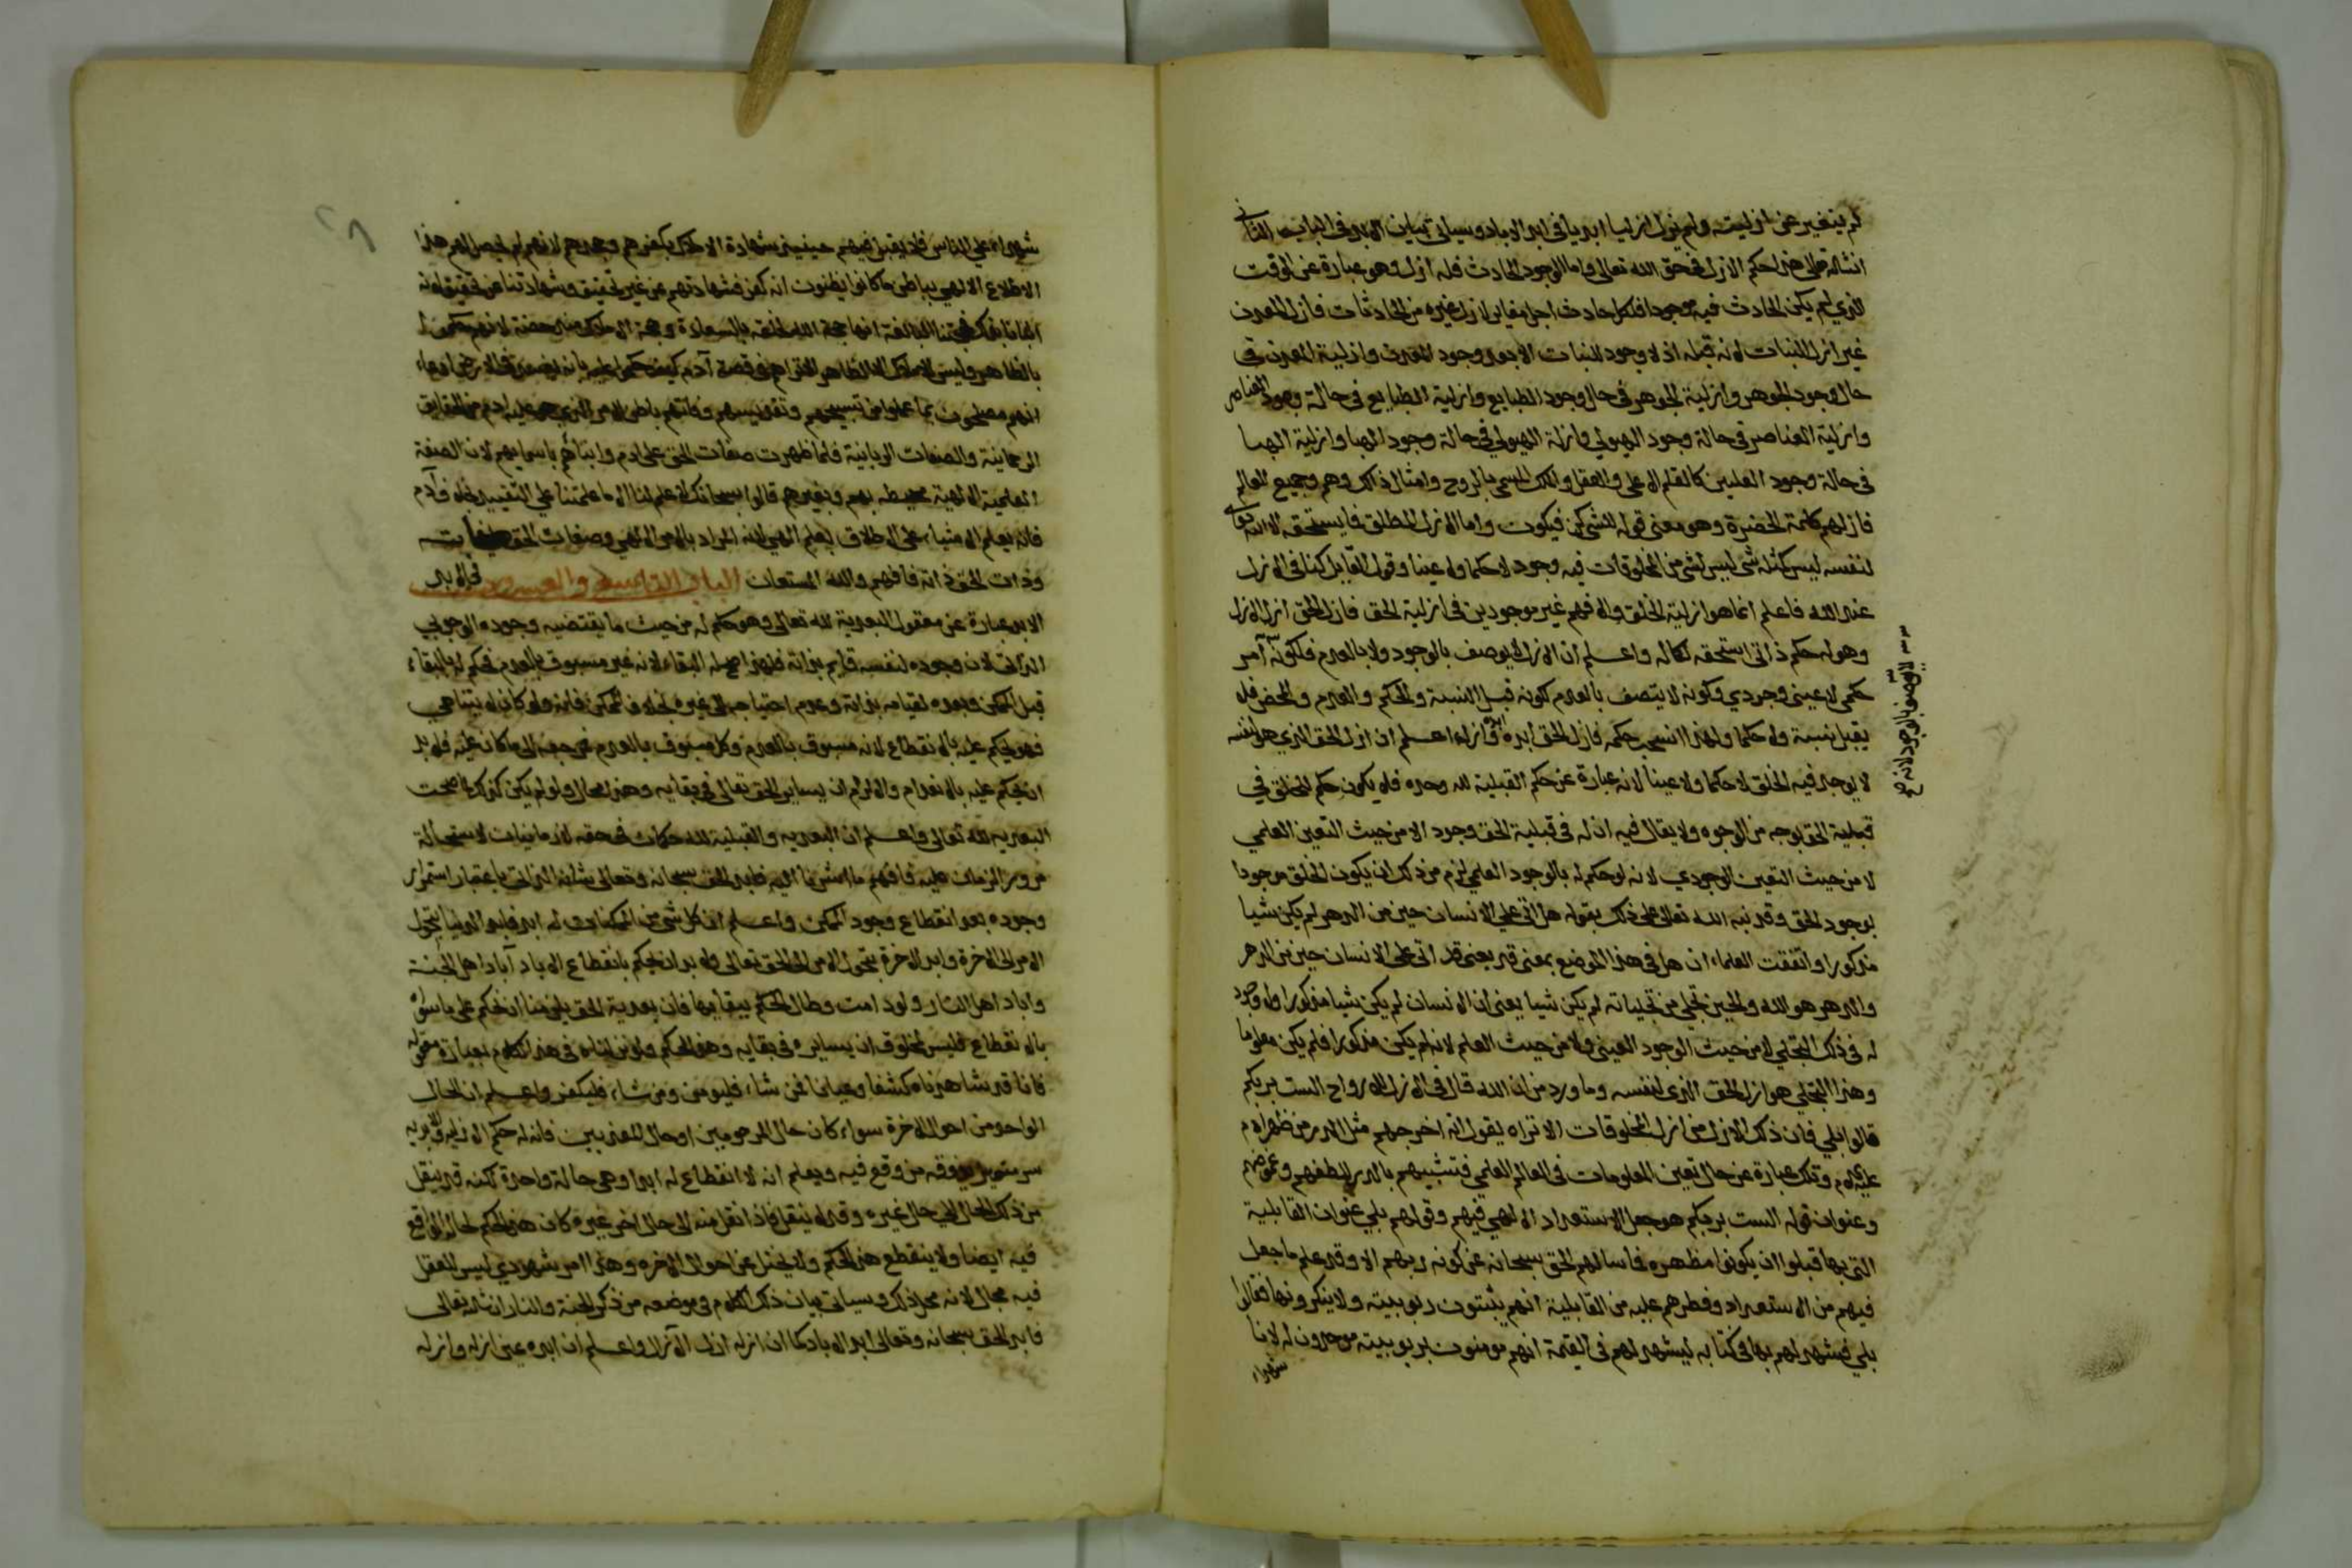 لم يتغير عن ازليته ولم يزل ازليا ابديا في ابد الاباد وسياتي بيان الابد في الباب الثاني
انشاء الله تعالى هذا حكم الازل في حق الله تعالى واما الوجود الحادث فله ازل وهو عبارة عن الوقت
الذي لم يكن الحادث فيه موجودا فلكل حادث ازل مغاير لازل غيره من الحادثات فازل المعدن
غير ازل النبات لانه قبله اذ لا وجود للنبات الا بعد وجود المعدن وازلية المعدن في
حال وجود الجوهر وازلية الجوهر في حال وجود الطبايع وازلية الطبايع في حالة وجود العناصر
وازلية العناصر في حالة وجود الهيولي وازلة الهيولي في حالة وجود الهبا وازلية الهبا
في حالة وجود العليين كالقلم الاعلى والعقل والملك المسمى بالروح وامثال ذلك وهم وجميع العالم
فازلهم كلمة الحضرة وهو معنى قوله للشي كن فيكون واما الازل المطلق فما يستحقه الا الله
لنفسه ليس كمثله شي ليس لشي من المخلوقات فيه وجود لا حكما ولا عينا وقول القايل كنا في الازل
عند الله فاعلم انما هو ازلية الخلق والا فهم غير موجودين في ازلية الحق فازل الحق ازل الازل
وهو له حكم ذاتي استحقه لكماله واعلم ان الازل لا يوصف بالوجود ولا بالعدم فلكونه امر
حكمي لا عيني وجودي وكونه لا يتصف بالعدم لكونه قبل النسبة والحكم والعدم والمحض فلا
يقبل نسبة ولا حكما ولهذا انسحب حكمه فازل الحق ابده وابده ازله اعلم ان ازل الحق الذي هو لنفسه
لا يوجد فيه الخلق لا حكما ولا عينا لانه عبارة عن حكم القبلية لله وحده فلا يكون حكم للخلق في
قبلية الحق بوجه من الوجوه ولا يقال فيه ان له في قبلية الحق وجود الا من حيث التعين العلمي
لا من حيث التعين الوجودي لانه لو حكم له بالوجود العلمي لزم من ذلك ان يكون الخلق موجودا
بوجود الحق وقد نبه الله تعالى على ذلك بقوله هل اتى على الانسان حين من الدهر لم يكن شيا
مذكورا واتفقت العلماء ان هل في هذا الموضع بمعنى قد يعني قد اتى على الانسان حين من الدهر
والدهر هو الله والحين تجلي من تجلياته لم يكن شيا يعني ان الانسان لم يكن شيا مذكورا ولا وجود
له في ذلك التجلي لا من حيث الوجود العيني ولا من حيث العلم لانه لم يكن مذكورا فلم يكن معلوما
وهذا التجلي هو ازل الحق الذي لنفسه وما ورد من ان الله قال في الازل للارواح الست بربكم
قالوا بلي فان ذلك الازل من ازل المخلوقات الا تراه يقول انه اخرجهم مثل الذر من ظهر ادم
عليه السلام وتلك عبارة عن حال تعين المعلومات في العالم العلمي فتشبيههم بالذر للطفهم وغموضهم
وعنوان قوله الست بربكم هو جعل الاستعداد الالهي فيهم وقولهم بلي عنوان القابلية
التي بها قبلوا ان يكونوا مظهره فما سالهم الحق سبحانه عن كونه ربهم الا وقد علم ما جعل
فيهم من الاستعداد وفطرهم عليه من القابلية انهم يثبتون ربوبيته ولا ينكرونها فقالوا
بلي فشهد لهم بها في كتابه ليشهد لهم في القيمة انهم مومنون بربوبيته موحدون له لانا
شهداء
لا يوصف بالوجود لانه
شهداء على الناس فلا يقبل فيهم حينيذ شهادة الاملاك بكفرهم وجحدهم لانهم لم يحصل لهم هذا
الاطلاع الالهي بباطن ما كانوا يظنون انه كفر فشهادتهم عن غير تحقيق وشهادتنا عن تحقيق لانه
انبانا بذلك فحجتنا البالغة انها حجة الله لخلقه بالسعادة وحجة الاملاك داحضة لانهم حكموا
بالظاهر وليس للاملاك الا الظاهر الا تراهم في قصة آدم كيف حكموا عليه بانه يفسد في الارض وادعاء
انهم مصلحون بما عملوا من تسبيحهم وتقديسهم وفاتهم باطن الامر الذي هو عليه ادم من الحقايق
الرحمانية والصفات الربانية فلما ظهرت صفات الحق على ادم وانبأهم باسمايهم لان الصفة
العلمية الالهية محيطه بهم وبغيرهم قالوا سبحانك لا علم لنا الا ما علمتنا على التقييد بخلاف آدم
فانه يعلم الاشياء على الاطلاق لعلم الهي لانه المراد بالامر الالهي وصفات الحق صفاته
وذات الحق ذاته فافهم والله المستعان الباب التاسع والعشرون في الابد
الابد عبارة عن معقول البعدية لله تعالى وهو حكم له من حيث ما يقتضيه وجوده الوجوبي
الذاتي لان وجوده لنفسه قايم بذاته فلهذا صح له البقاء لانه غير مسبوق بالعدم فحكم له بالبقاء
قبل الممكن وبعده لقيامه بذاته وعدم احتياجه الى غيره بخلاف الممكن فانه ولو كان لا يتناهي
فهو محكوم عليه بالانقطاع لانه مسبوق بالعدم وكل مسبوق بالعدم فمرجعه الى ما كان عليه فلا بد
ان يحكم عليه بالانعدام والا لزم ان يساير الحق تعالى في بقايه وهذا محال ولو لم يكن كذلك لما صحت
البعديه لله تعالى واعلم ان البعديه والقبلية لله حكمان في حقه لا زمانيان لاستحالة
مرور الزمان عليه فافهم ما اشرنا اليه فابد الحق سبحانه وتعالى شانه الذاتي باعتبار استمرار
وجوده بعد انقطاع وجود الممكن واعلم ان كل شي من الممكنات له ابد فابد الدنيا بتحول
الامر الى الاخرة وابد الاخرة بتحول الامر الى الحق تعالى ولا بد ان نحكم بانقطاع الاباد آباد اهل الجنة
واباد اهل النار ولو دامت وطال الحكم ببقايها فان بعدية الحق يلزمنا ان نحكم على ما سواه
بالانقطاع فليس لمخلوق ان يسايره في بقايه وهذا الحكم ولو انزلناه في هذا الكلام بعبارة معقوله
فانا قد شاهدناه كشفا وعيانا فمن شاء فليومن ومن شاء فليكفر واعلم ان الحال
الواحد من احوال الاخرة سواء كان حال المرحومين او حال المعذبين فانه له حكم الازليه والابديه
سر عزيز يذوقه من وقع فيه ويعلم انه لا انقطاع له ابدا وهي حالة واحدة لكنه قد ينقل
من ذلك الحال الى حال غيره وقد لا ينقل فاذا نقل منه الى حال اخر غيره كان هذا الحكم لحاله الواقع
فيه ايضا ولا ينقطع هذا الحكم ولا يختل عن احوال الاخره وهذا امر شهودي ليس للعقل
فيه مجال لانه محل ذلك وسياتي بيان ذلك الكلام في موضعه من ذكر الجنة والنار ان شاء الله تعالى
فابد الحق سبحانه وتعالى ابد الاباد كما ان ازله ازل الآزال واعلم ان ابده عين ازله وازله